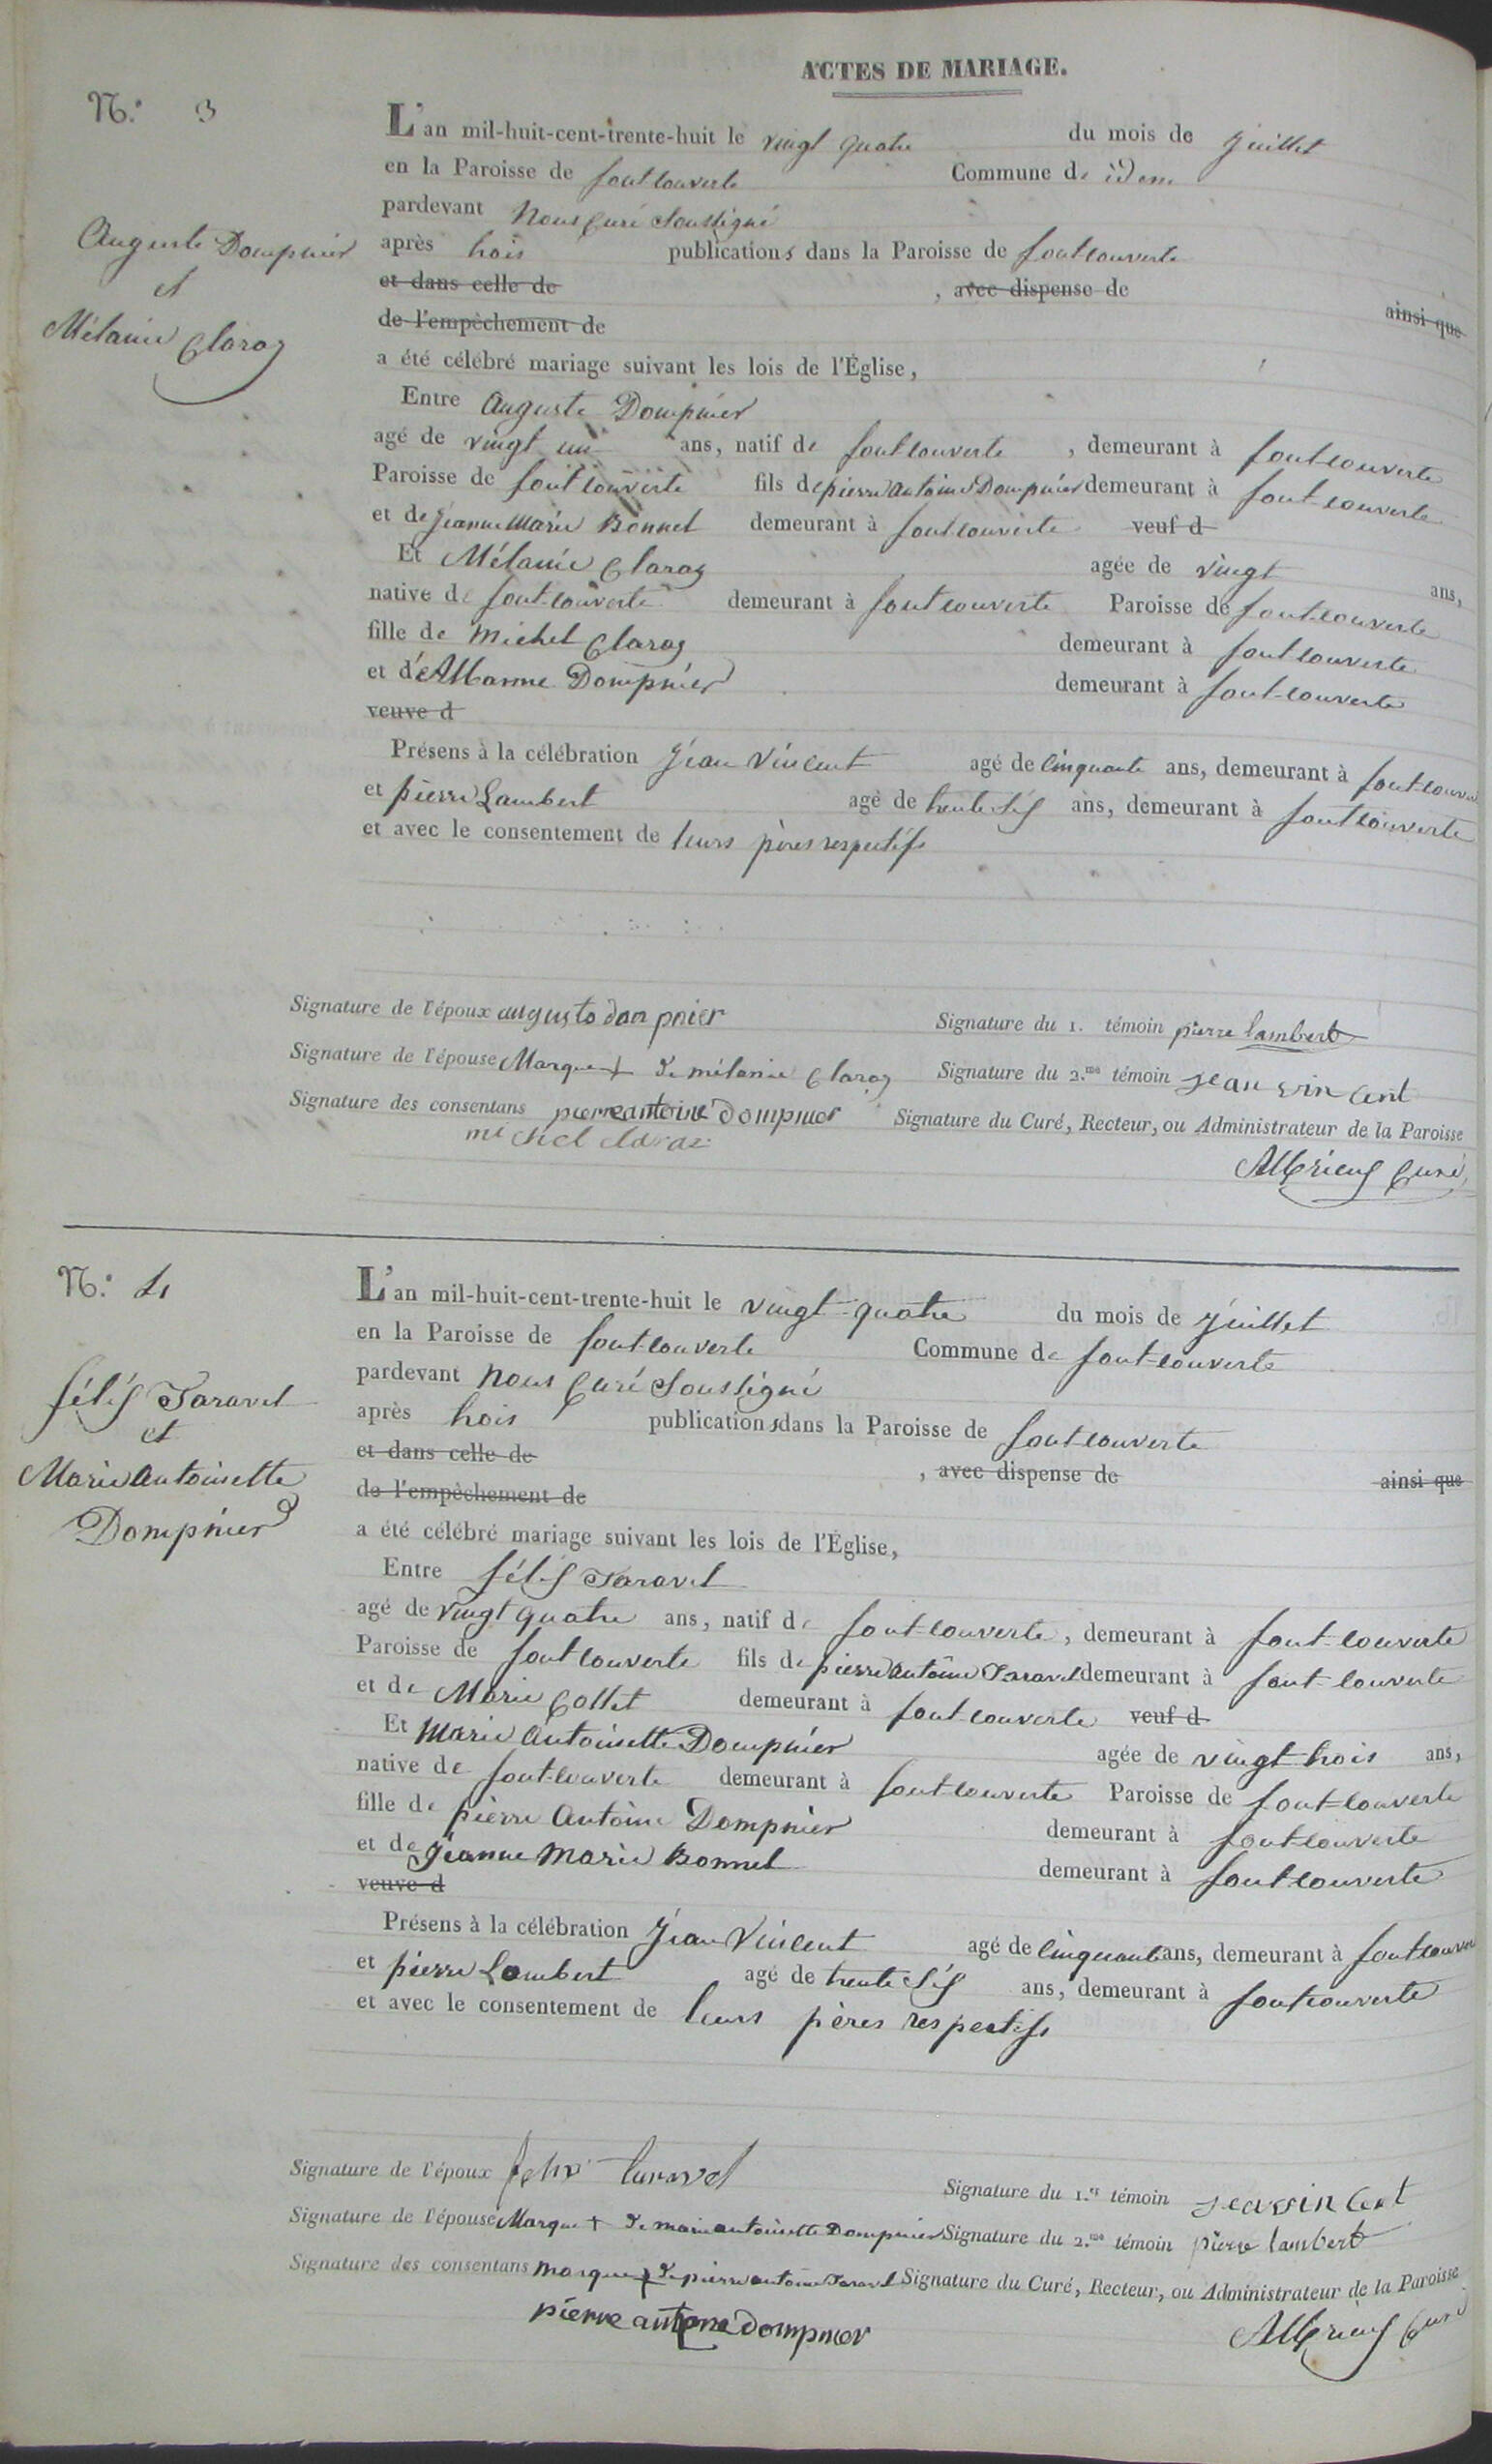 ACTES DE MARIAGE.
N.° 3
Auguste Dompnier
et
Mélanie Claraz
L'an mil-huit-cent-trente-huit le vingt quatre du mois de juillet
en la Paroisse de fontcouverte Commune de idem
pardevant Nous Curé Soussigné
après trois publications dans la Paroisse de fontcouverte
et dans celle de , avec dispense de
de l'empêchement de ainsi que
a été célébré mariage suivant les lois de l'Église,
Entre Auguste Dompnier
agé de vingt un ans, natif de fontcouverte , demeurant à fontcouverte
Paroisse de fontcouverte fils de pierre Antoine Dompnier demeurant à font-couverte
et de Jeanne Marie Bonnel demeurant à fontcouverte veuf d
Et Mélanie Claraz agée de vingt ans,
native de font-couverte demeurant à fontcouverte Paroisse de font-couverte
fille de Michel Claraz demeurant à fontcouverte
et de Marie Dompnier demeurant à font-couverte
veuve d
Présens à la célébration Jean Vincent agé de cinquante ans, demeurant à font-couver
et pierre Lambert agé de trente six ans, demeurant à fontcouverte
et avec le consentement de leurs pères respectifs
Signature de l'époux augusto dompnier Signature du 1. témoin pierre lambert
Signature de l'épouse Marque + de mélanie Claraz Signature du 2.me témoin jean vin cent
Signature des consentans pierre antoine dompnier Signature du Curé, Recteur, ou Administrateur de la Paroisse
michel claraz
Curé
N.° 4
félix Taravel
et
Marie Antoinette
Dompnier
L'an mil-huit-cent-trente-huit le vingt-quatre du mois de juillet
en la Paroisse de font-couverte Commune de font-couverte
pardevant Nous Curé Soussigné
après trois publications dans la Paroisse de fontcouverte
et dans celle de , avec dispense de ainsi que
de l'empêchement de
a été célébré mariage suivant les lois de l'Église,
Entre félix Taravel
agé de vingt quatre ans, natif de font-couverte , demeurant à font-couverte
Paroisse de fontcouverte fils de pierre Antoine Taravel demeurant à font-couverte
et de Marie Collet demeurant à font-couverte veuf d
Et Marie Antoinette Dompnier agée de vingt trois ans,
native de font-couverte demeurant à fontcouverte Paroisse de font-couverte
fille de pierre Antoine Dompnier demeurant à fontcouverte
et de Jeanne Marie Bonnel demeurant à font-couverte
veuve d
Présens à la célébration Jean Vincent agé de cinquante ans, demeurant à fontcouver
et pierre Lambert agé de trente six ans, demeurant à fontcouverte
et avec le consentement de leurs pères respectifs
Signature de l'époux felix taravel Signature du 1.er témoin jean vin cent
Signature de l'épouse Marque + de marie antoinette Dompnier Signature du 2.me témoin pierre lambert
Signature des consentans marque + de pierre antoine Taravel Signature du Curé, Recteur, ou Administrateur de la Paroisse
pierre antoine dompnier
Curé